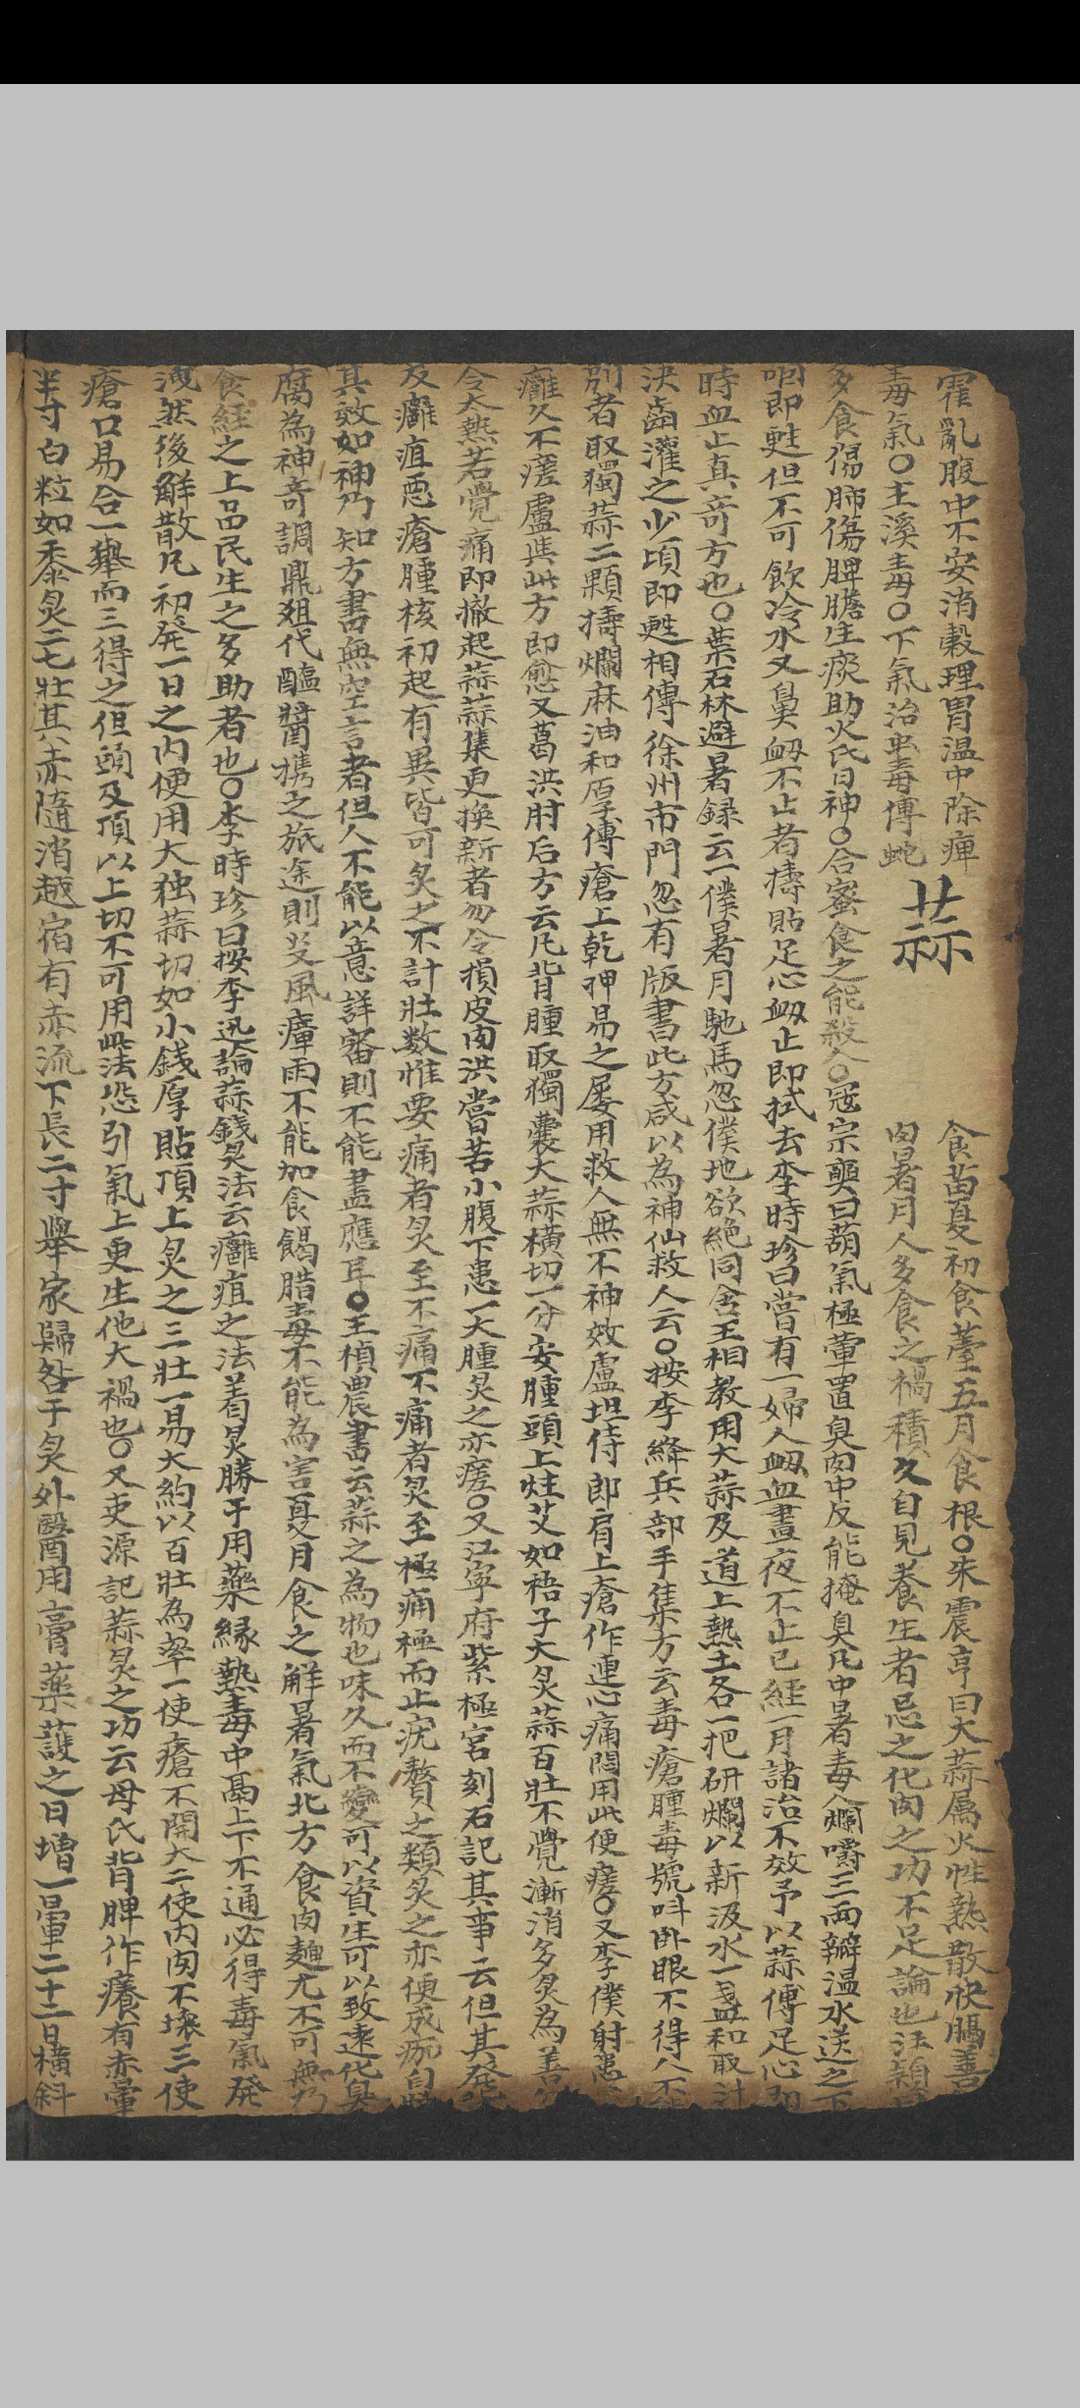 霍亂腹中不安消穀理胃温中除痺
毒氣〇主溪毒〇下氣治蠱毒傅蛇
蒜
食苗夏初食薹五月食根〇朱震亨曰大蒜属火性熱散快膈善
肉暑月人多食之禍積久自見養生者忌之化肉之功不足論也汪穎
多食傷肺傷脾膽生痰助火氏曰神〇合蜜食之能殺人〇冦宗奭曰葫氣極葷置臭肉中反能掩臭凡中暑毒人爛嚼三两瓣温水送之下
咽即甦但不可飲冷水又鼻衂不止者擣貼足心衂止即拭去李時珍曰嘗有一婦人衂血晝夜不止已經一月諸治不效予以蒜傅足心即
時血止真竒方也〇葉石林避暑録云一僕暑月馳馬忽僕地欲絶同舍王相教用大蒜及道上熱土各一把研爛以新汲水一盞和取汁
決齒灌之少頃即甦相傳徐州市門忽有版書此方咸以為神仙救人云〇按李絳兵部手集方云毒瘡腫毒號呌卧眼不得人不能
别者取獨蒜二顆擣爛麻油和厚傅瘡上乾即易之屡用救人無不神效盧坦侍郎肩上瘡作連心痛悶用此便瘥〇又李僕射患
癰久不瘥盧與此方即愈又葛洪肘后方云凡背腫取獨囊大蒜橫切一分安腫頭上炷艾如梧子大炙蒜百壯不覺漸消多炙為善勿
令大熱若覺痛即撤起蒜蒜焦更換新者勿令損皮肉洪嘗苦小腹下患一大腫炙之亦瘥〇又江寧府紫極宮刻石記其事云但其發背
及癰疽悪瘡腫核初起有異皆可炙之不計壯数惟要痛者炙至不痛不痛者炙至極痛極而止疣贅之類炙之亦便成痂自脫
其效如神乃知方書無空言者但人不能以意詳審則不能盡應耳〇王楨農書云蒜之為物也味久而不變可以資生可以致遠化臭
腐為神竒調鼎俎代醯醬携之旅途則炎風瘴雨不能加食餲腊毒不能為害夏月食之解暑氣北方食肉麺尤不可無乃
食経之上品民生之多助者也〇李時珍曰按李迅論蒜錢炙法云癰疽之法着炙勝于用藥緣熱毒中鬲上下不通必得毒氣發
洩然後觧散凡初発一日之内便用大独蒜切如小錢厚貼頂上炙之三壯一易大約以百壯為率一使瘡不開大二使内肉不壞三使
瘡口易合一舉而三得之但頭及項以上切不可用此法恐引氣上更生他大禍也〇又吏源記蒜炙之功云母氏背胛作癢有赤暈
半寸白粒如黍炙二七壯其赤隨消越宿有赤流下長二寸舉家歸咎于炙外醫用膏藥護之日増一暈二十二日橫斜